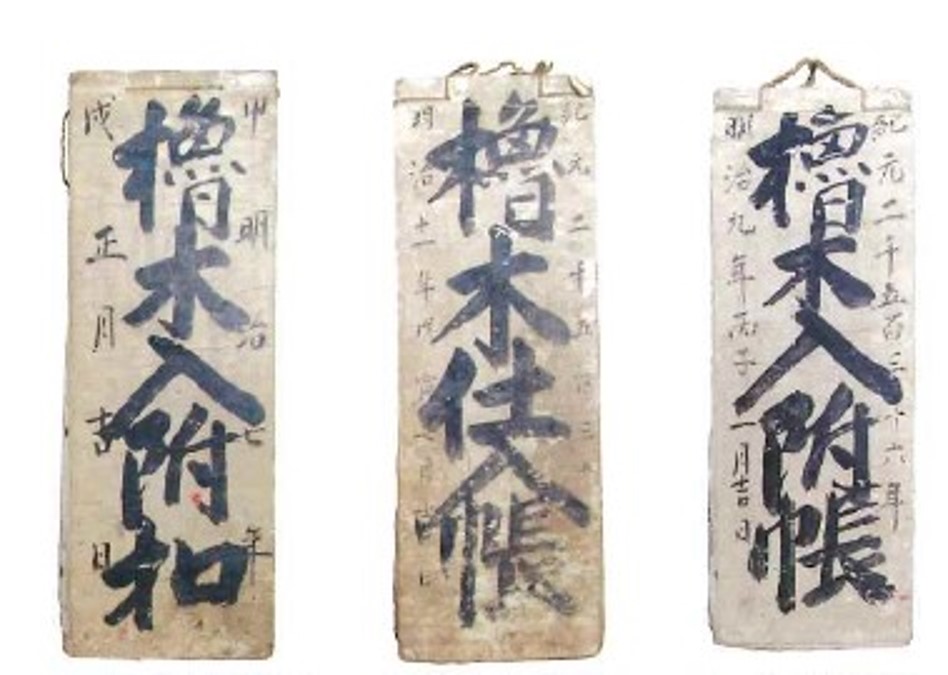 紀元二千五百三十六年
櫓木入附帳
明治九年丙子一月吉日
紀元二千五百三
櫓木仕入帳
明治十一年戊寅
甲明治七年
櫓木入附扣
戌正月吉日